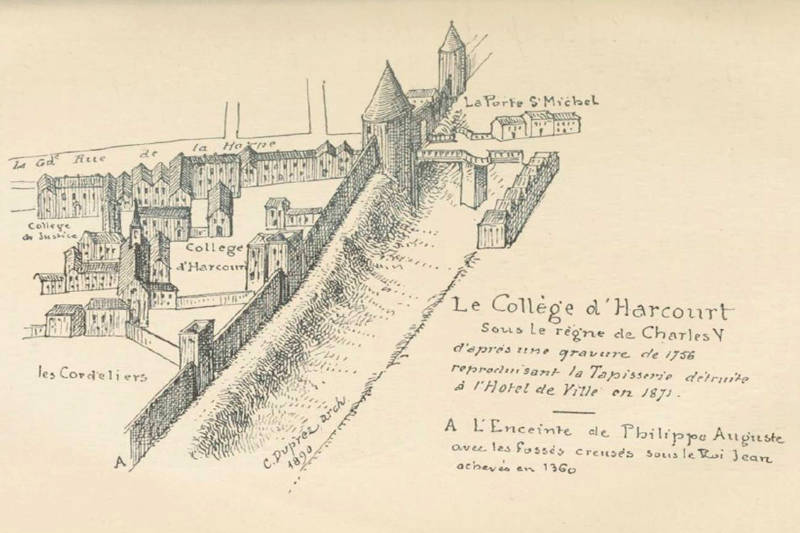 La Porte St Michel
La Gde Rue de la Harpe
College
de Justice
College
d'Harcourt
les Cordeliers
A
C. Duprez arch
1890
Le Collège d'Harcourt
Sous le règne de Charles V
d'après une gravure de 1756
reproduisant la Tapisserie détruite
à l'Hotel de Ville en 1871.
A L'Enceinte de Philippe Auguste
avec les fossés creusés sous le Roi Jean
achevés en 1360